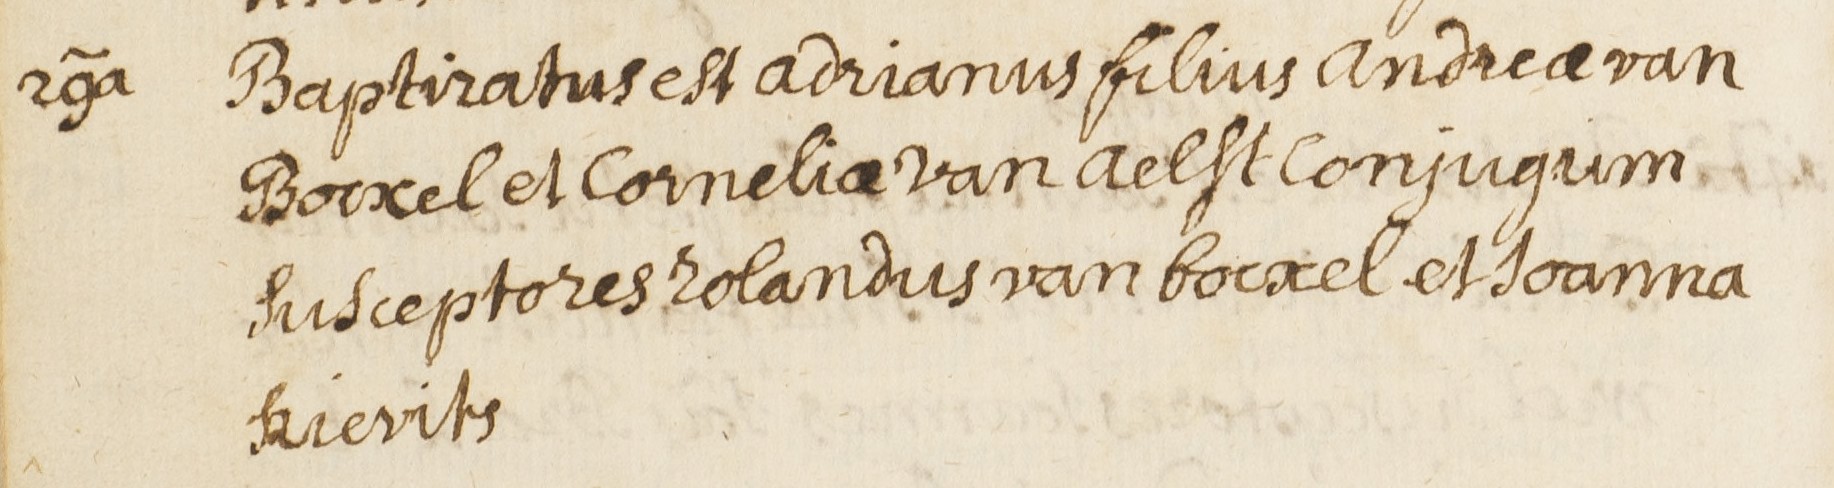 29a Baptizatus est Adrianus filius Andreæ van
Bocxel et Corneliæ van Aelst Conjugum
Susceptores Rolandus van bocxel et Joanna
kievits